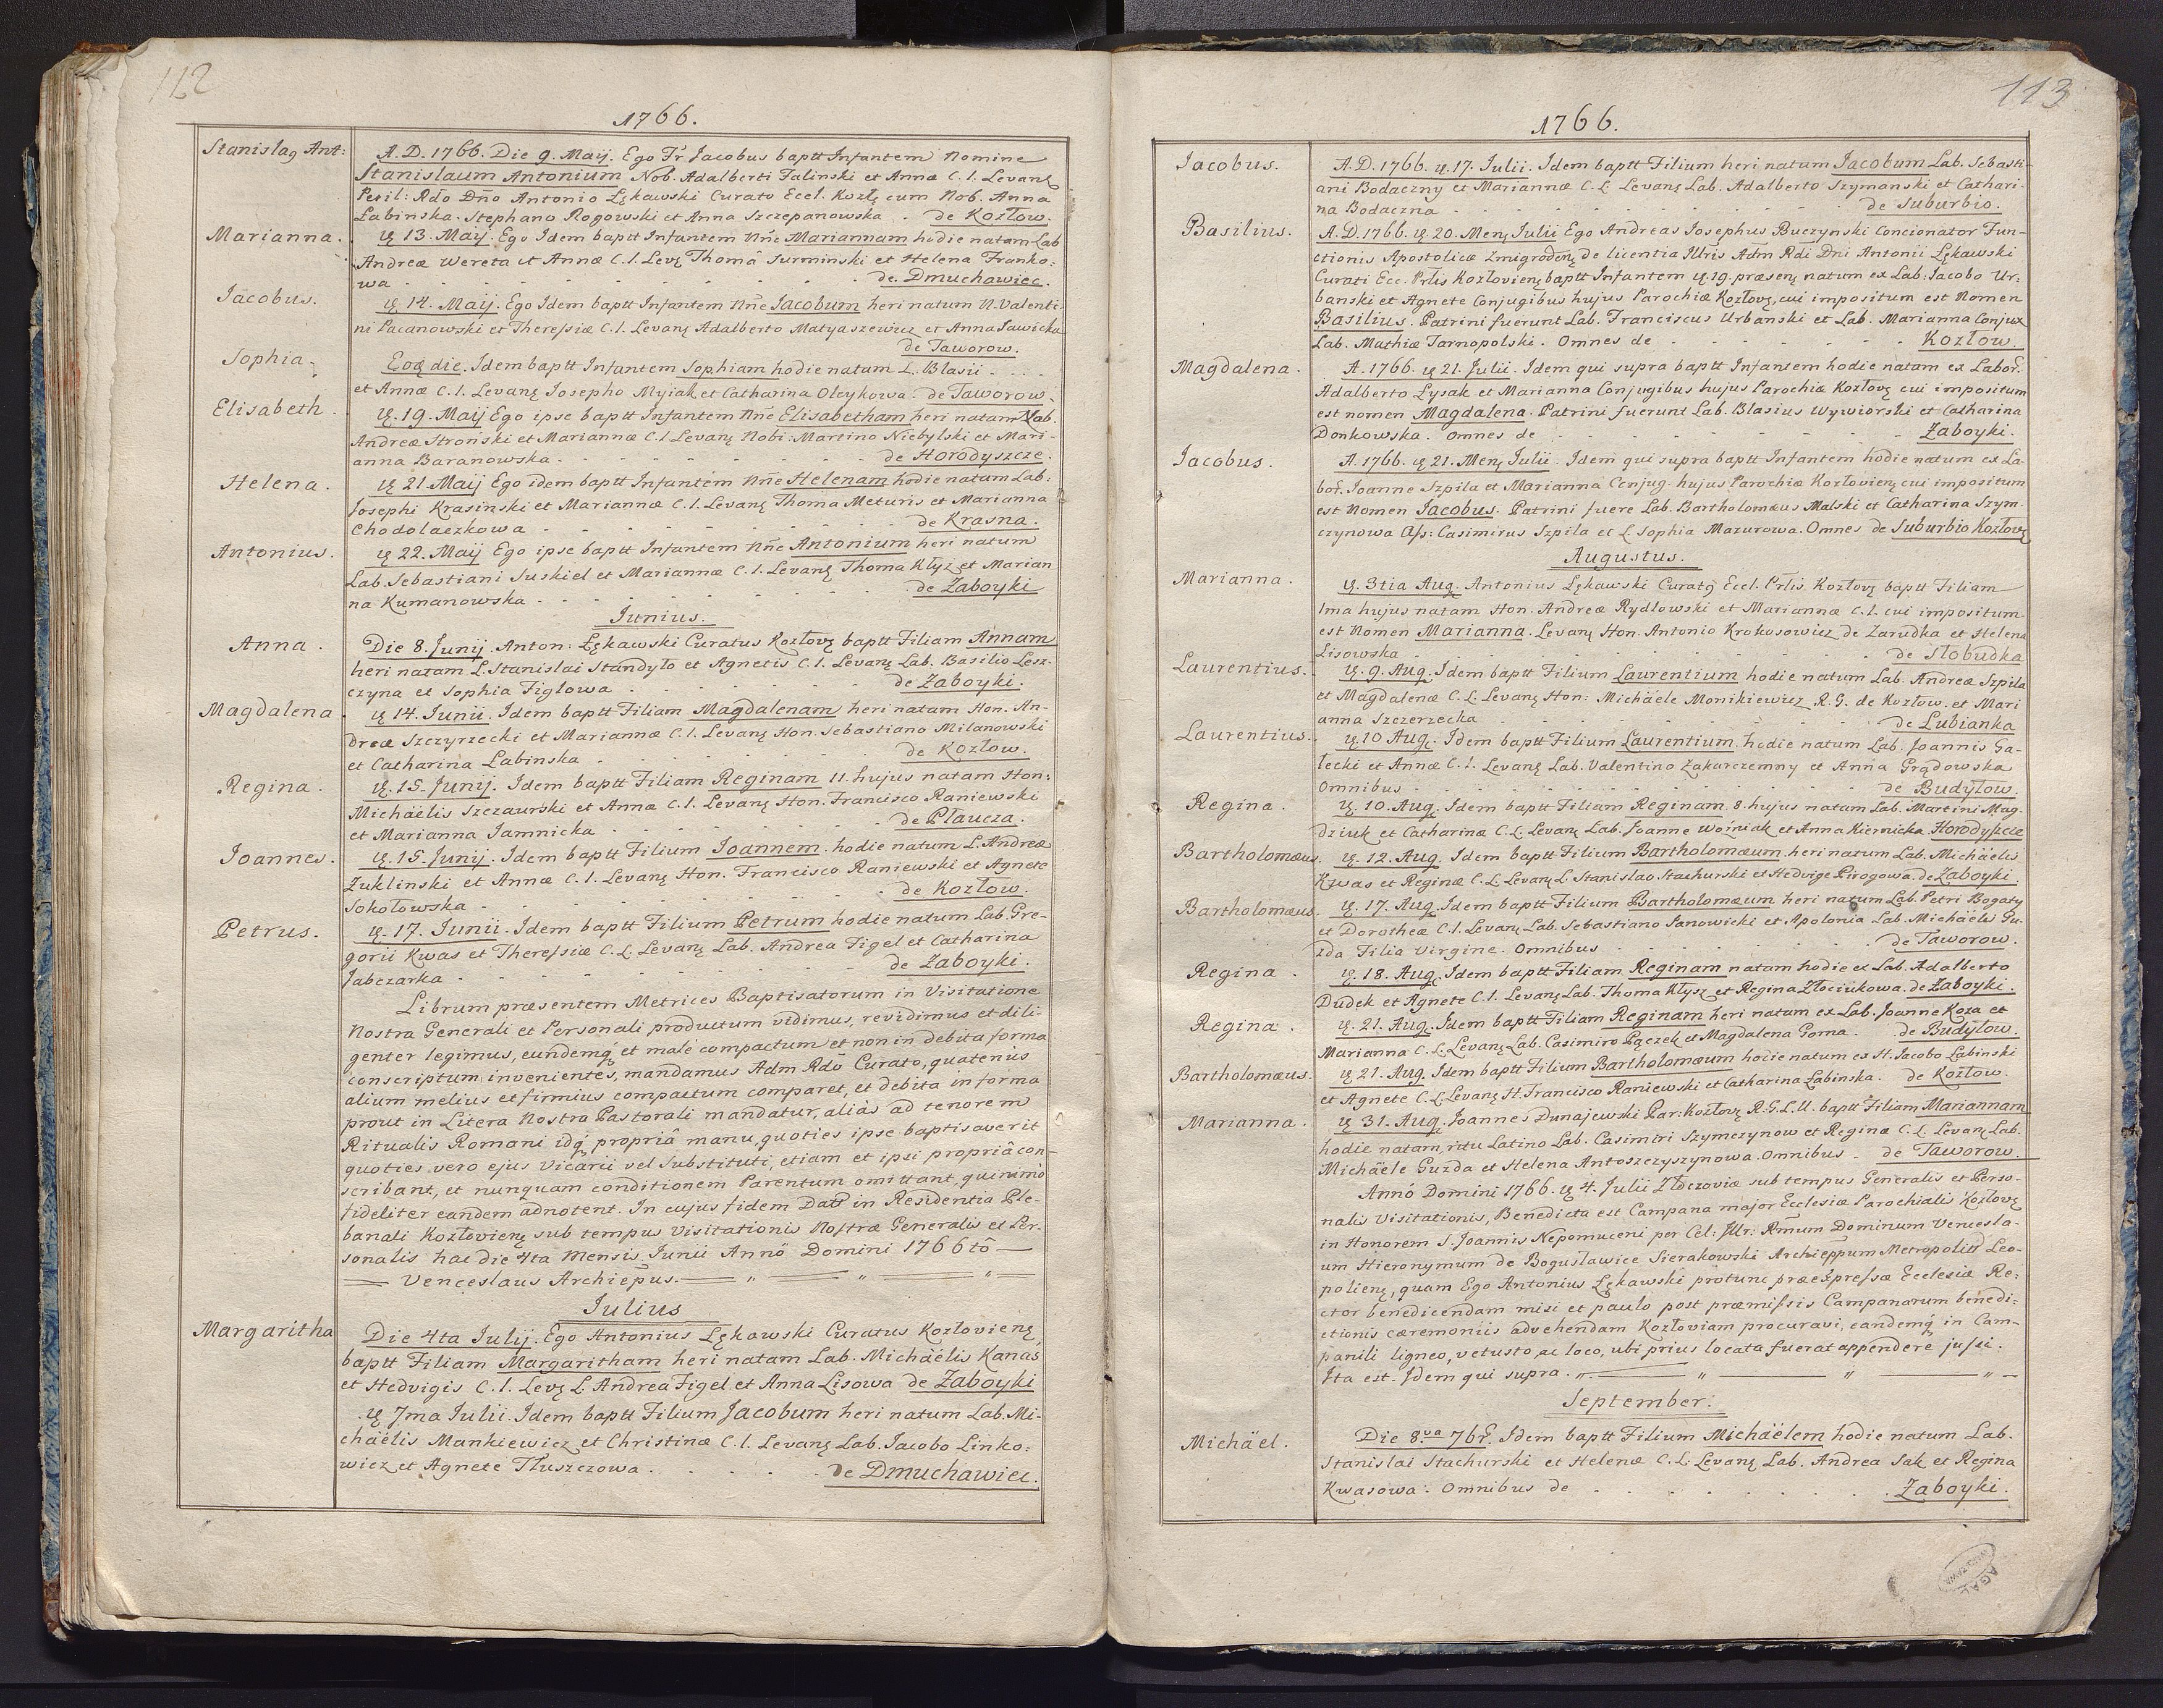 112
1766.
Stanislaq Ant:
A. D. 1766. Die 9. Maij. Ego Fr Jacobus baptt Infantem Nomine
Stanislaum Antonium Nob. Adalberti Talinski et Annæ C. l. Levanę
Peril: Rdo Dño Antonio Lękawski Curato Eccl. Kozłę cum Nob. Anna
Łabinska. Stephano Rogowski et Anna Szczepanowska . de Kozłow.
Marianna.
ię 13. Maij. Ego Idem baptt Infantem Nñe Mariannam hodie natam Lab
Andreæ Wereta et Annæ C. l. Levę Thomâ Surminski et Helena Franko:
wa . . . . . . . . de Dmuchawiec.
Jacobus.
ię 14. Maij. Ego Idem baptt Infantem Nñe Jacobum heri natum N. Valenti
ni Pacanowski et Theresiæ C. l. Levanę Adalberto Matyaszewicz et Anna Sawicka
de Taworow.
Sophia.
Eoq die. Idem baptt Infantem Sophiam hodie natam L. Blasii . . . .
et Annæ C. l. Levanę Josepho Myjak et Catharina Oleykowa. de Taworow.
Elisabeth.
ię. 19. Maij Ego ipse baptt Infantem Nñe Elisabetham heri natam Nob.
Andreæ Stroński et Mariannæ C. l Levanę Nobi: Martino Niebylski et Mari-
anna Baranowska . . . . . . . . de Horodyszcze.
Helena.
ię 21. Maij Ego idem baptt Infantem Nñe Helenam hodie natam Lab:
Josephi Krasinski et Mariannæ C. l. Levanę Thoma Meturis et Marianna
Chodolaczkowa . . . . . . . . de Krasna.
Antonius.
ię 22. Maij Ego ipse baptt Infantem Nñe Antonium heri natum
Lab. Sebastiani Suskiel et Mariannæ C. l. Levanę Thoma Kłyz et Marian
na Kumanowska . . . . . . . . de Zaboyki
Junius.
Anna.
Die 8. Junij. Anton: Łękawski Curatus Kozłovę baptt Filiam Annam
heri natam L. Stanislai Standyło et Agnetis C. l. Levanę Lab. Basilio Lesz-
czyna et Sophia Figlowa . . . . . . de Zaboyki.
Magdalena
ię 14. Junii. Idem baptt Filiam Magdalenam heri natam Hon. An-
dreæ Szczyrzecki et Mariannæ C. l. Levanę Hon. Sebastiano Milanowski
et Catharina Labinska . . . . . . de Kozłow.
Regina.
ię. 15. Junij. Idem baptt Filiam Reginam 11. hujus natam Hon:
Michäelis Szczaurski et Annæ C. l. Levanę Hon. Francisco Raniewski
et Marianna Jamnicka . . . . . . de Plaucza.
Joannes.
ię. 15. Junij. Idem baptt Filium Joannem. hodie natum L. Andreæ
Zuklinski et Annæ C. l. Levanę Hon. Francisco Raniewski et Agnete
Sokołowska . . . . . . . . de Kozłow.
Petrus.
ię. 17. Junii. Idem baptt Filium Petrum hodie natum Lab. Gre-
gorii Kwas et Theresiæ C. L. Levanę Lab. Andrea Figel et Catharina
Jabczarka . . . . . . . . de Zaboyki.
Librum præsentem Metrices Baptisatorum in Visitatione
Nostra Generali et Personali productum vidimus, revidimus et dili-
genter legimus, eundemq et malè compactum et non in debita forma
conscriptum invenientes, mandamus Adm Rdo Curato, quatenùs
alium melius et firmius compactum comparet, et debita in forma
prout in Litera Nostra Pastorali mandatur, aliàs ad tenorem
Ritualis Romani idq propriâ manu, quoties ipse baptisaverit
quoties vero ejus Vicarii vel Substituti, etiam et ipsi propriâ con-
scribant, et nunquam conditionem Parentum omittant, quinimò
fideliter eandem adnotent. In cujus fidem Datt in Residentia Ple-
banali Kozłovienę sub tempus Visitationis Nostræ Generalis et Per-
sonalis hac die 4ta Mensis Junii Annô Domini 1766 tô —
Venceslaus Archiepus. — „ — „ — „
Julius
Margaritha
Die 4ta Julij. Ego Antonius Lękawski Curatus Kozłovienę
baptt Filiam Margaritham heri natam Lab. Michäelis Kanas
et Hedvigis C. l. Levę L. Andrea Figel et Anna Lisowa de Zaboyki
ię 7ma Julii. Idem baptt Filium Jacobum heri natum Lab. Mi-
chäelis Mankiewicz et Christinæ C. l. Levanę Lab. Jacobo Linko:
wicz et Agnete Tłuszczowa . . . . . de Dmuchawiec.
113
1766.
Jacobus.
A. D. 1766. ię. 17. Julii. Idem baptt Filium heri natum Jacobum Lab. Sebasti-
ani Bodaczny et Mariannæ C. L. Levanę Lab. Adalberto Szymanski et Cathari-
na Bodaczna . . . . . . . . de Suburbio.
Basilius.
A. D. 1766. ię 20. Menę Julii Ego Andreas Josephus Buczynski Concionator Fun-
ctionis Apostolicæ Zmigrodenę de licentia Illris Adm Rdi Dni Antonii Lękawski
Curati Ecc. Prlis Kozłovienę baptt Infantem ię 19. præsenę natum ex Lab. Jacobo Ur-
banski et Agnete Conjugibus hujus Parochiæ Kozłovę, cui impositum est Nomen
Basilius. Patrini fuerunt Lab. Franciscus Urbanski et Lab. Marianna Conjux
Lab. Mathiæ Tarnopolski. Omnes de . . . . . . Kozłow.
Magdalena.
A. 1766. ię 21. Julii. Idem qui supra baptt Infantem hodie natam ex Labor.
Adalberto Lysak et Marianna Conjugibus hujus Parochiæ Kozłovę cui impositum
est nomen Magdalena. Patrini fuerunt Lab. Blasius Wywiorski et Catharina
Donkowska. Omnes de . . . . . . . Zaboyki.
Jacobus.
A. 1766. ię 21. Menę Julii. Idem qui supra baptt Infantem hodie natum ex La-
bor. Joanne Szpila et Marianna Conjug. hujus Parochiæ Kozłovienę cui impositum
est Nomen Jacobus. Patrini fuere Lab. Bartholomæus Malski et Catharina Szym-
czynowa Ass: Casimirus Szpila et L. Sophia Mazurowa. Omnes de Suburbio Kozłovę
Augustus.
Marianna.
ię. 3tia Aug. Antonius Lękawski Curatq Eccl. Prlis Kozłovę baptt Filiam
1ma hujus natam Hon. Andreæ Rydlowski et Mariannæ C. l. cui impositum
est Nomen Marianna. Levanę Hon. Antonio Krokosowicz de Zarudka et Helena
Lisowska . . . . . . . . . de Słobudka
Laurentius.
ię. 9. Aug. Idem baptt Filium Laurentium hodie natum Lab. Andreæ Szpila
et Magdalenæ C. L. Levanę Hon: Michäele Monikiewicz R. G. de Kozłow. et Mari
anna Szczerzecka . . . . . . . . de Lubianka
Laurentius.
ię 10 Aug. Idem baptt Filium Laurentium. hodie natum Lab. Joannis Ga-
łecki et Annæ C. l. Levanę Lab. Valentino Zakarczemny et Anna Grądowska
Omnibus . . . . . . . . . de Budyłow.
Regina.
ię. 10. Aug. Idem baptt Filiam Reginam. 8. hujus natam Lab. Martini Mag-
dziuk et Catharinæ C. L. Levanę Lab. Joanne Woźniak et Anna Kiernicka. Horodyszcze
Bartholomæus.
ię. 12. Aug. Idem baptt Filium Bartholomæum. heri natum Lab. Michäelis
Kwas et Reginæ C. L. Levanę L. Stanislao Stachurski et Hedvige Pirogowa. de Zaboyki.
Bartholomæus.
ię. 17. Aug. Idem baptt Filium Bartholomæum heri natum Lab. Petri Bogaty
et Dorotheæ C. l. Levanę Lab. Sebastiano Sanowicki et Apolonia Lab. Michäelis Gu-
zda Filia Virgine. Omnibus . . . . . . de Taworow.
Regina.
ię. 18. Aug. Idem baptt Filiam Reginam natam hodie ex Lab. Adalberto
Dudek et Agnete C. l. Levanę Lab. Thoma Kłysz et Regina Złociukowa. de Zaboyki.
Regina.
ię. 21. Aug. Idem baptt Filiam Reginam heri natam ex Lab. Joanne Koza et
Marianna C. L. Levanę Lab. Casimiro Pączek et Magdalena Gorna. de Budyłow.
Bartholomæus.
ię 21. Aug. Idem baptt Filium Bartholomæum hodie natum ex H. Jacobo Labinski
et Agnete C. L. Levanę H. Francisco Raniewski et Catharina Łabinska. de Kozłow.
Marianna.
ię 31. Aug. Joannes Dunajewski Par: Kozłovę R. G. L. U. baptt Filiam Mariannam
hodie natam, ritu Latino Lab. Casimiri Szymczynow et Reginæ C. L. Levanę Lab.
Michäele Guzda et Helena Antoszczyszynowa. Omnibus . de Taworow.
Annô Domini 1766. ię 4. Julii Złoczoviæ sub tempus Generalis et Perso-
nalis Visitationis, Benedicta est Campana major Ecclesiæ Parochialis Kozlovę
in Honorem S. Joannis Nepomuceni per Cel: Illr: Rmum Dominum Vencesla-
um Hieronymum de Bogusławice Sierakowski Archieppum Metropolitt Leo-
polienę, quam Ego Antonius Lękawski protunc præexpressæ Ecclesiæ Re:
ctor benedicendam misi et paulo post præmissis Campanarum benedi-
ctionis cæremoniis advehendam Kozłoviam procuravi, eandemq in Cam-
panili ligneo, vetusto, ac loco, ubi prius locata fuerat appendere jussi.
Ita est. Idem qui supra. „ — „ — „ — „
September.
Michäel.
Die 8va 7br. Idem baptt Filium Michäelem hodie natum Lab.
Stanislai Stachurski et Helenæ C. L. Levanę Lab. Andrea Sak et Regina
Kwasowa. Omnibus de . . . . . . . Zaboyki.
AGAD